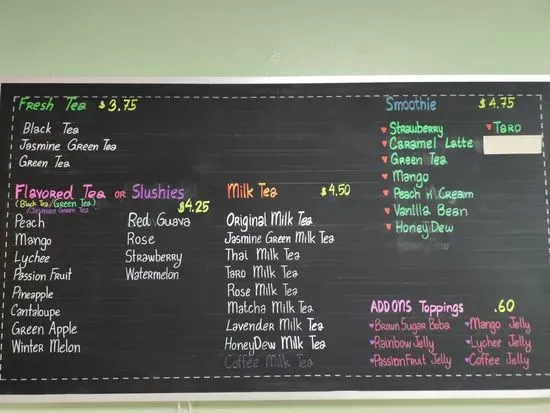 Fresh Tea $3.75
Black Tea
Jasmine Green Tea
Green Tea
Flavored Tea or Slushies
(Black Tea/Green Tea)
/Jasmine Green Tea
$4.25
Peach
Mango
Lychee
Passion Fruit
Pineapple
Cantaloupe
Green Apple
Winter Melon
Red Guava
Rose
Strawberry
Watermelon
Milk Tea $4.50
Original Milk Tea
Jasmine Green Milk Tea
Thai Milk Tea
Taro Milk Tea
Rose Milk Tea
Matcha Milk Tea
Lavender Milk Tea
HoneyDew Milk Tea
Coffee Milk Tea
Smoothie $4.75
Strawberry
Caramel Latte
Green Tea
Mango
Peach n' Cream
Vanilla Bean
HoneyDew
Taro
ADD ONS Toppings .60
Brown Sugar Boba
Rainbow Jelly
Passion Fruit Jelly
Mango Jelly
Lychee Jelly
Coffee Jelly